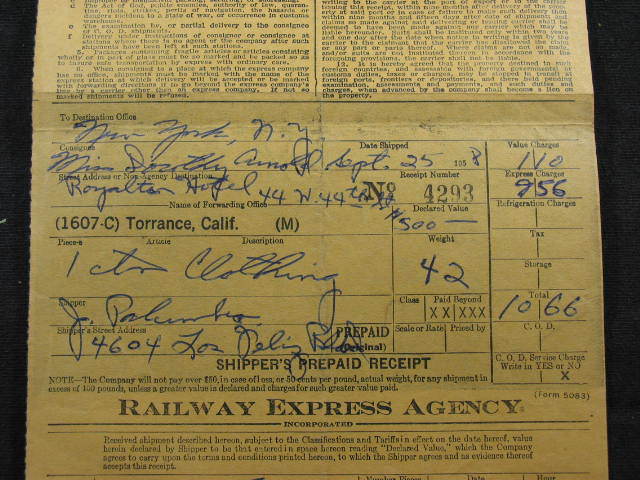 dangers incident to a state of war, or occurrence in customs
e The examination by, or partial delivery to the consignee
of C. O. D. shipments.
f Delivery under instructions of consignor or consignee at
stations where there is no agent of the company after such
shipments have been left at such stations.
5. Packages containing fragile articles or articles consisting
wholly or in part of glass must be so marked and be packed so as
to insure safe transportation by express with ordinary care.
has no office, shipments must be marked with the name of the
express station at which delivery will be accepted or be marked
with forwarding directions if to go beyond the express company's
line by a carrier other than an express company. If not so
marked shipments will be refused.
within nine months and fifteen days after date of shipment; and
and one day after the date when notice in writing is given by
the carrier to the claimant that the carrier has disallowed the claim
or any part or parts thereof. Where claims are not made,
and/or suits are not instituted thereon in accordance with the
foregoing provisions, the carrier shall not be liable.
12. It is hereby agreed that the property destined to such
foreign countries, and assessable with foreign governments or
customs duties, taxes or charges, may be stopped in transit at
foreign ports, frontiers or depositories, and there held pending
examination, assessments and payments, and such duties and
charges, when advanced by the company shall become a lien on
the property.
To Destination Office
New York, N. Y.
Consignee
Date Shipped
Value Charges
Miss Dorothy Arnold Sept. 25 1958
1 10
Street Address or Non-Agency Destination
Receipt Number
Express Charges
Royalton Hotel 44 W. 44th St
No 4293
9 56
Name of Forwarding Office
Declared Value
Refrigeration Charges
(1607-C) Torrance, Calif. (M)
$500
Tax
Piece-s Article Description
Weight
1 ctn Clothing
42
Storage
Shipper
Class Paid Beyond
Total
J. Palumbo
XX XXX
10 66
Shipper's Street Address
PREPAID
(Original)
Scale or Rate Priced by
C. O. D.
4604 Los Feliz Blvd
SHIPPER'S PREPAID RECEIPT
C. O. D. Service Charge
Write in YES or NO
X
NOTE—The Company will not pay over $50, in case of loss, or 50 cents per pound, actual weight, for any shipment in
excess of 100 pounds, unless a greater value is declared and charges for such greater value paid.
(Form 5083)
RAILWAY EXPRESS AGENCY
INCORPORATED
Received shipment described hereon, subject to the Classifications and Tariffs in effect on the date hereof, value
herein declared by Shipper to be that entered in space hereon reading "Declared Value," which the Company
agrees to carry upon the terms and conditions printed hereon, to which the Shipper agrees and as evidence thereof
accepts this receipt.